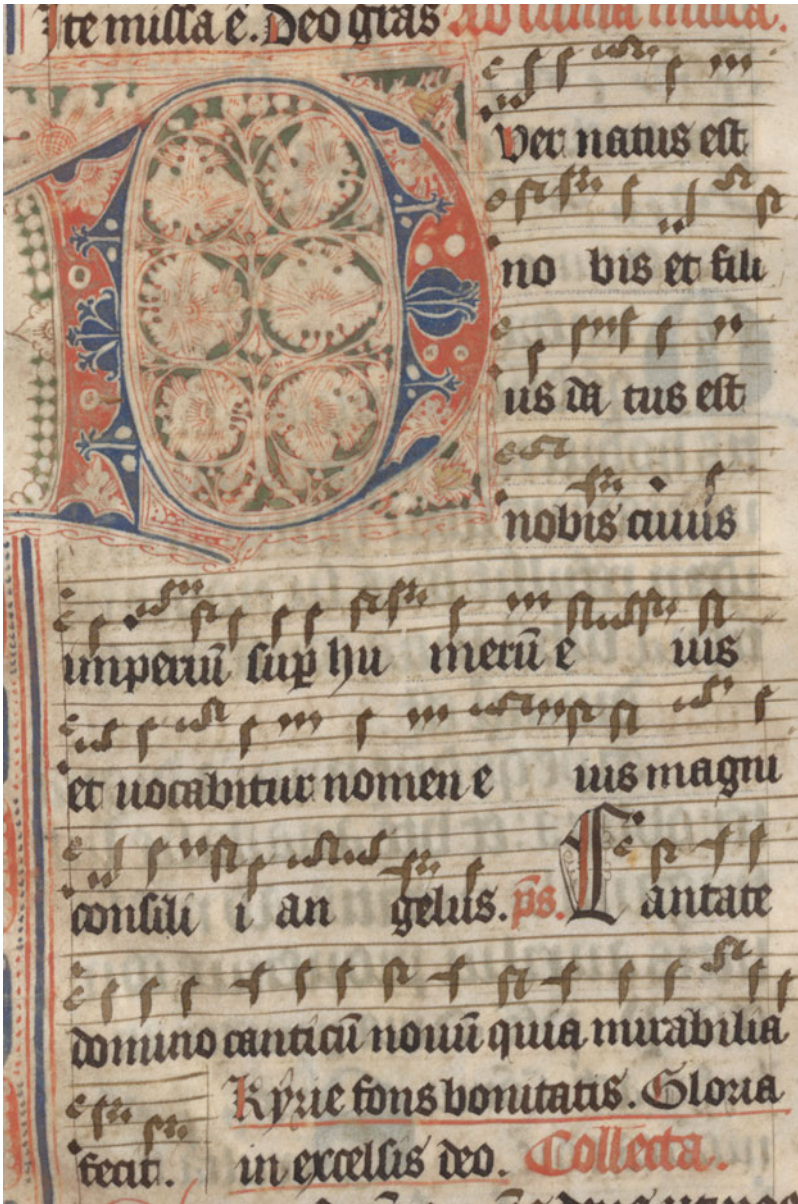 Ite missa ē. Deo gr̄as Ad summā missā.
Puer natus est
no bis et fili
us da tus est
nobis cuius
imperiū sup̱ hu merū e ius
et uocabitur nomen e ius magni
consili i an gelus. p̄s. Cantate
domino canticū nouū quia mirabilia
fecit. Kyrie fons bonitatis. Gloria
in excelsis deo. Collecta.